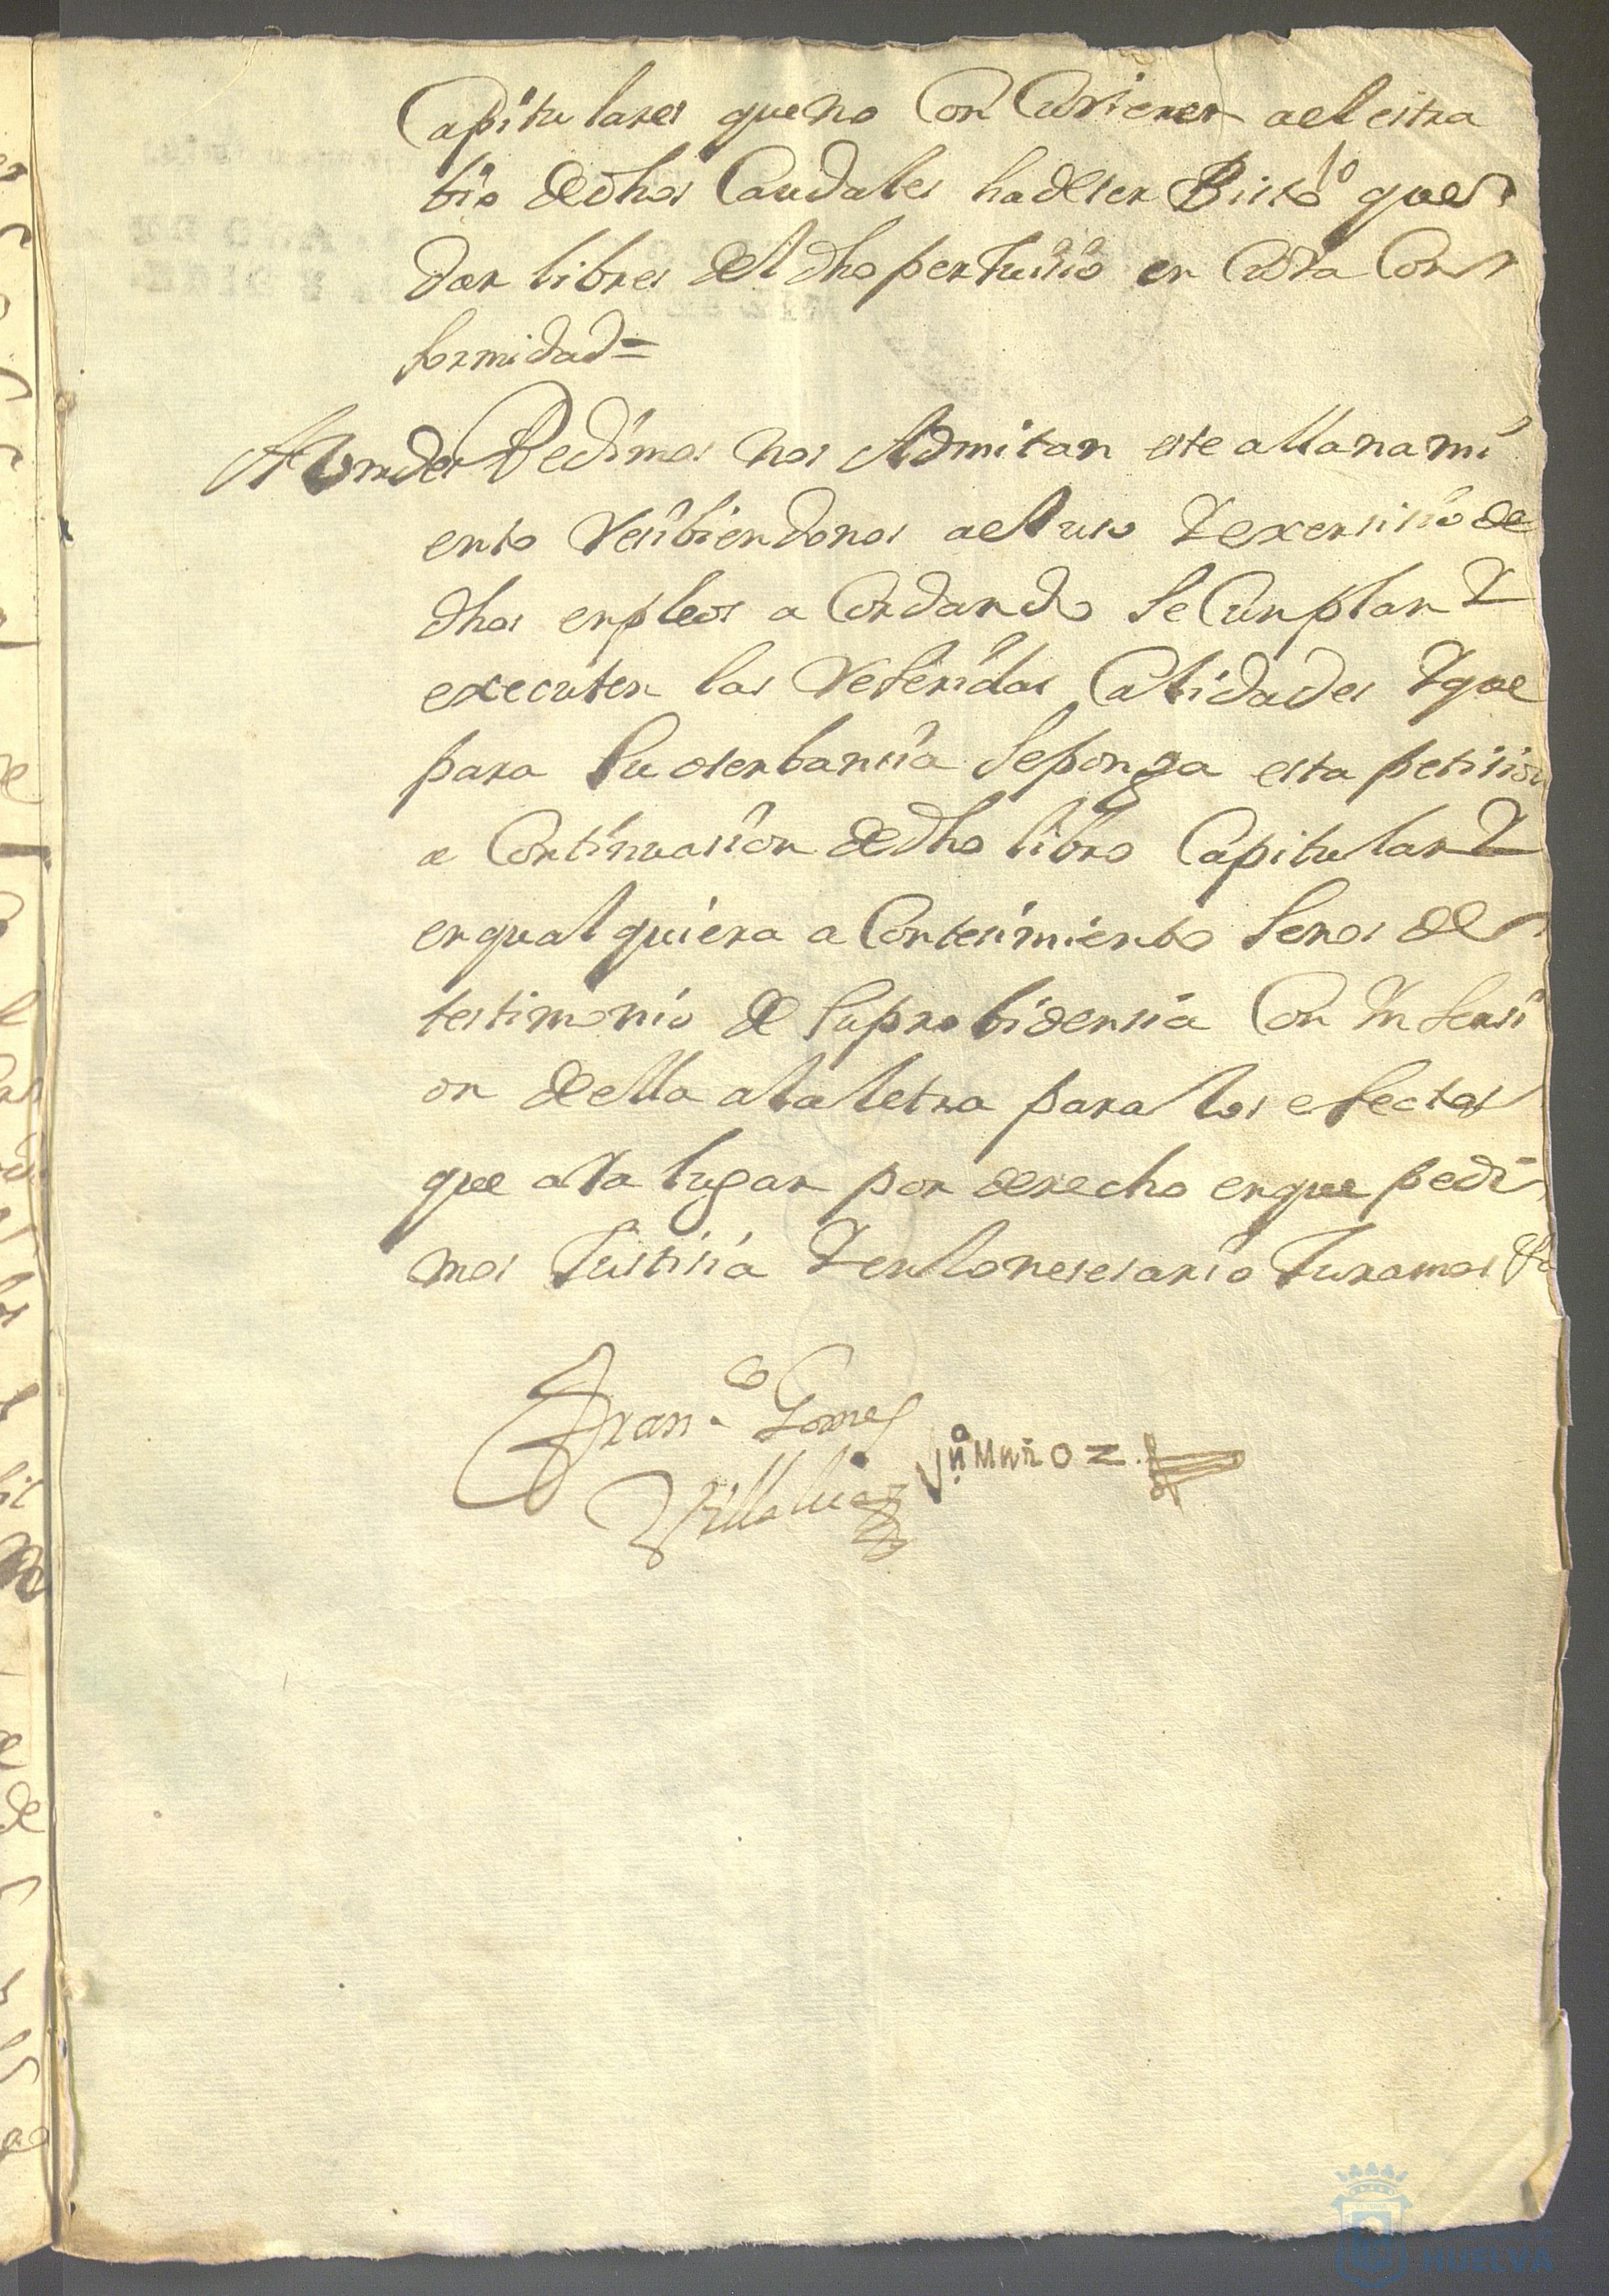 Capitulares que no Con Curieren a el estra
bio de dhos Caudales ha de ser Bisto que
dar libres de el dho perJuisio en Cuia Con
formidad =
A Vmdes Pedimos nos Admitan este allanami
ento Resibiendonos a el uso Y exersisio de
dhos enpleos a Cordando Se Cunplan Y
executen las Referidas Calidades Y que
para Su oserbansia Se ponga esta petision
a Continuasion de dho libro Capitular Y
en qualquiera a Contesimiento Senos de
testimonio de Su probidensia Con Ynsersi
on de ella a la letra para los efectos
que aYa lugar por derecho en que pedi
mos Justisia Y en lo nesesario Juramos &a
Fran.co Gomes
Jn Muñoz
HUELVA